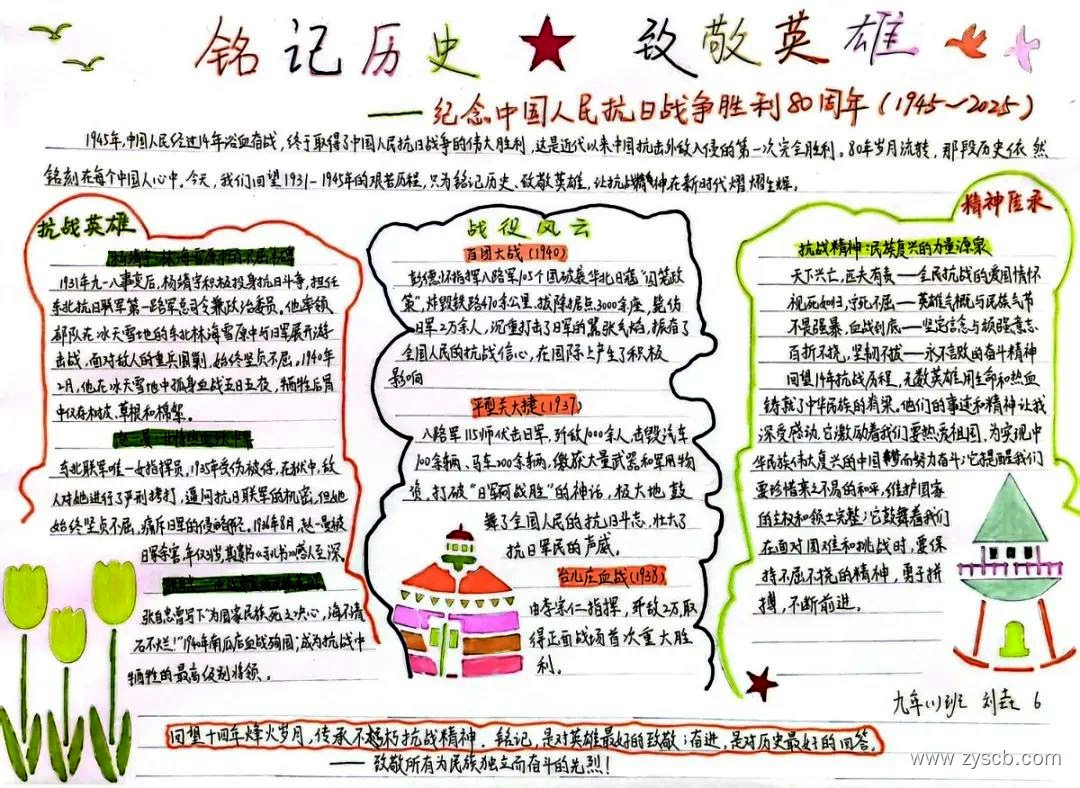 铭记历史 致敬英雄
——纪念中国人民抗日战争胜利80周年(1945~2025)
1945年,中国人民经过14年浴血奋战,终于取得了中国人民抗日战争的伟大胜利,这是近代以来中国抗击外敌入侵的第一次完全胜利。80年岁月流转,那段历史依然
铭刻在每个中国人心中。今天,我们回望1931-1945年的艰苦历程,只为铭记历史、致敬英雄,让抗战精神在新时代熠熠生辉。
抗战英雄
1931年九一八事变后,杨靖宇积极投身抗日斗争,担任
东北抗日联军第一路军总司令兼政治委员。他率领
部队在冰天雪地的东北林海雪原中与日军展开游
击战,面对敌人的重兵围剿,始终坚贞不屈。1940年
2月,他在冰天雪地中孤身血战五日五夜,牺牲后胃
中仅存树皮、草根和棉絮。
东北联军唯一女指挥员,1935年受伤被俘,在狱中,敌
人对她进行了严刑拷打,逼问抗日联军的机密,但她
始终坚贞不屈,痛斥日军的侵略罪行。1936年8月,赵一曼被
日军杀害,年仅31岁,其遗书《示儿书》感人至深
张自忠曾写下"为国家民族死之决心,海不清
石不烂!"1940年南瓜店血战殉国;成为抗战中
牺牲的最高级别将领。
战役风云
百团大战(1940)
彭德怀指挥八路军105个团破袭华北日寇"囚笼政
策",炸毁铁路470余公里,拔除据点3000余座,毙伤
日军2万余人,沉重打击了日军的嚣张气焰,振奋了
全国人民的抗战信心,在国际上产生了积极
影响
平型关大捷(1937)
八路军115师伏击日军,歼敌1000余人,击毁汽车
100余辆、马车200余辆,缴获大量武器和军用物
资,打破"日军不可战胜"的神话,极大地鼓
舞了全国人民的抗日斗志,壮大了
抗日军民的声威。
台儿庄血战(1938)
由李宗仁指挥,歼敌2万,取
得正面战场首次重大胜
利。
精神传承
抗战精神:民族复兴的力量源泉
天下兴亡,匹夫有责——全民抗战的爱国情怀
视死如归,宁死不屈——英雄气概与民族气节
不畏强暴,血战到底——坚定信念与顽强意志
百折不挠,坚韧不拔——永不言败的奋斗精神
回望14年抗战历程,无数英雄用生命和热血
铸就了中华民族的脊梁。他们的事迹和精神让我
深受感动。它激励着我们要热爱祖国,为实现中
华民族伟大复兴的中国梦而努力奋斗;它提醒我们
要珍惜来之不易的和平,维护国家
的主权和领土完整;它鼓舞着我们
在面对困难和挑战时,要保
持不屈不挠的精神,勇于拼
搏,不断前进。
九年(1)班 刘垚 6
回望十四年烽火岁月,传承不朽抗战精神。铭记,是对英雄最好的致敬;奋进,是对历史最好的回答。
——致敬所有为民族独立而奋斗的先烈!
www.zyscb.com